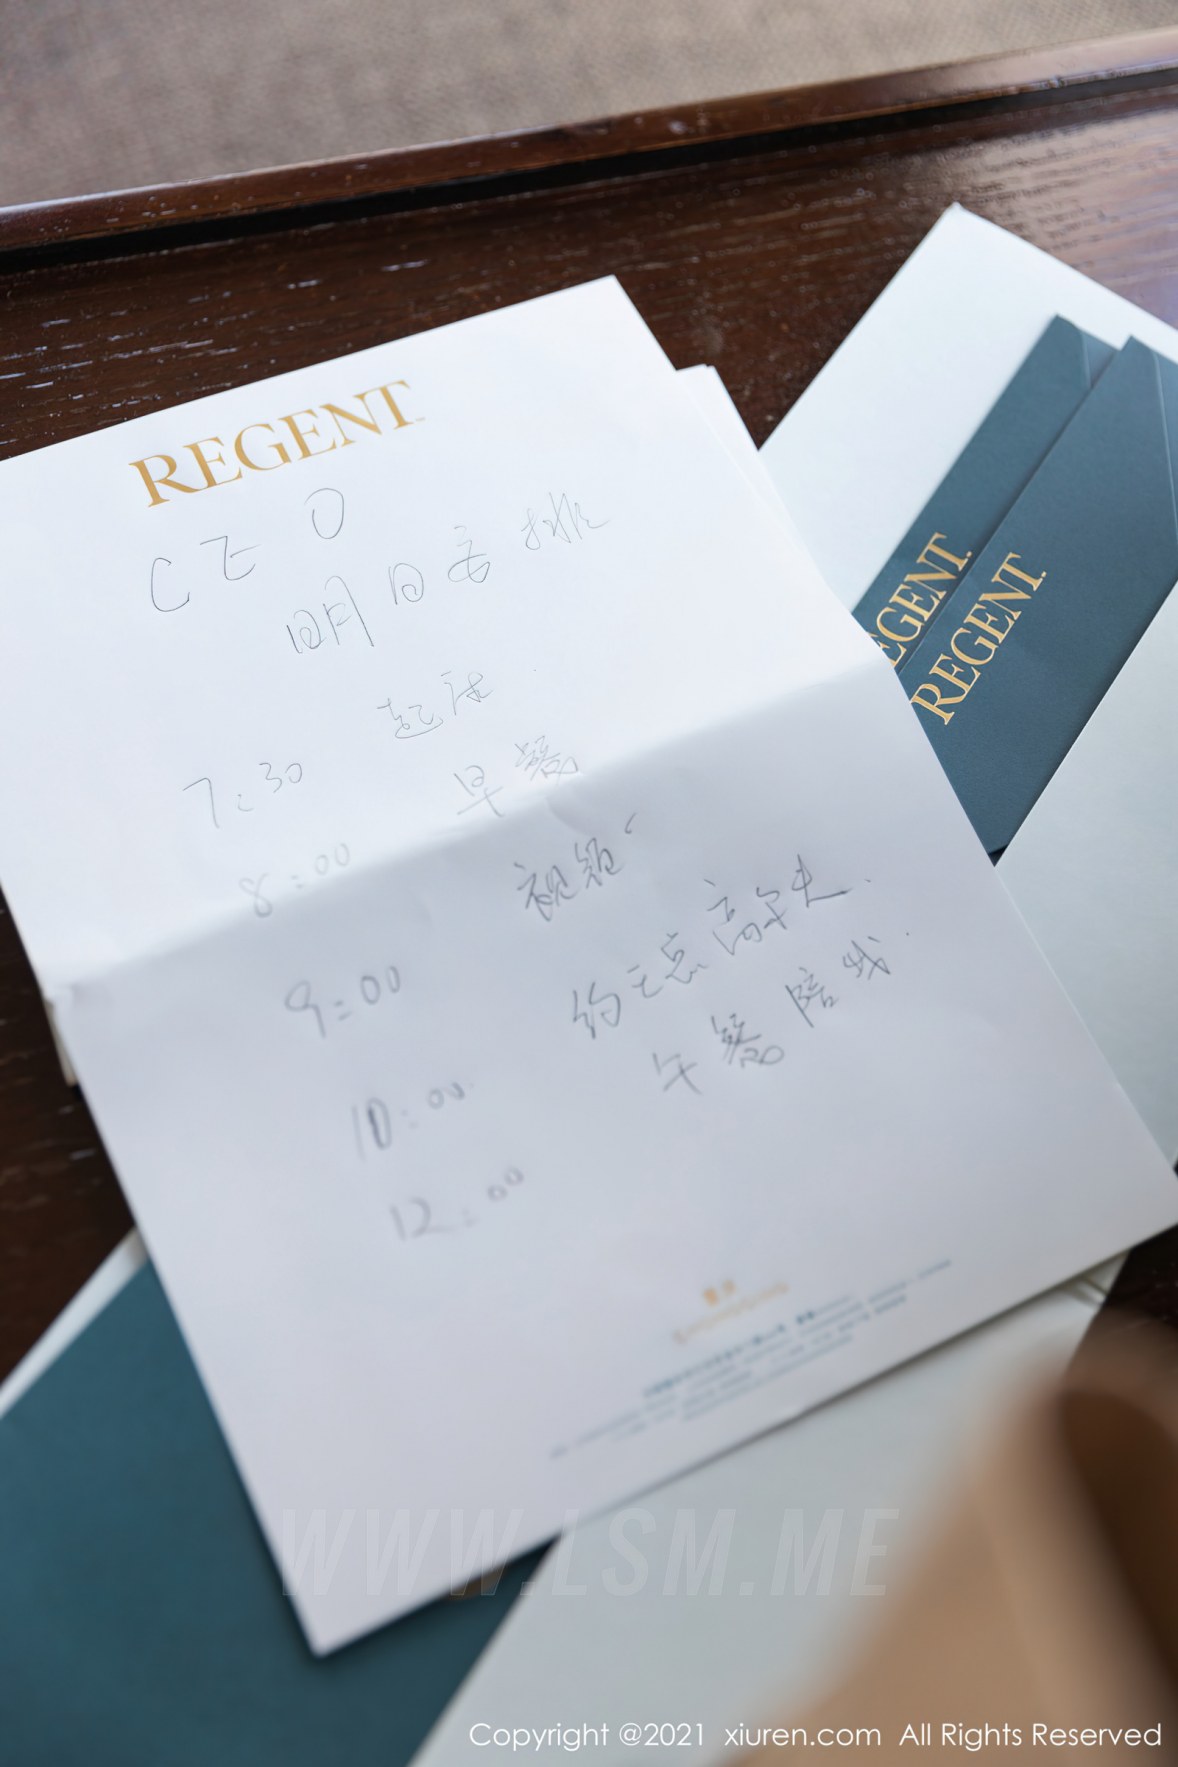 REGENT
CEO
明日安排
7:30 起床
8:00 早餐
9:00 视频
10:00 约王总高尔夫.
12:00 午餐陪我.
REGENT
REGENT
WWW.LSM.ME
Copyright @2021 xiuren.com All Rights Reserved